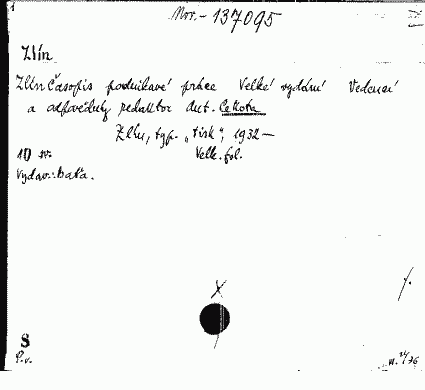 1
Mor.-137095
Zlín
Zlín Časopis podnikavé práce Velké vydání Vedoucí
a odpovědný redaktor Ant. Cekota
Zlín, typ. „Tisk“, 1932—
10 sv. Velk. fol.
Vydav.: Baťa.
X
S
P.v.